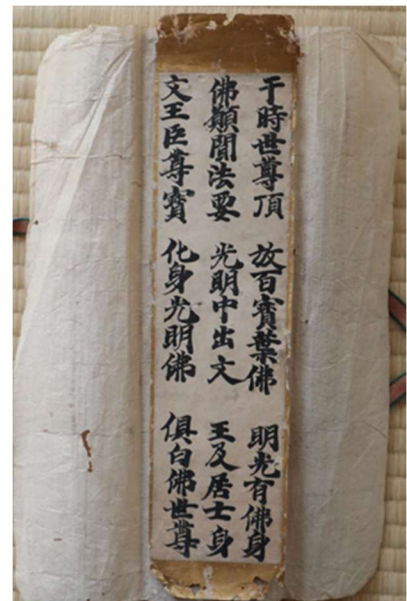 于時世尊頂 放百寳葉佛 明光有佛身
佛願聞法要 光明中出文 王及居士身
文王臣尊寳 化身光明佛 俱白佛世尊